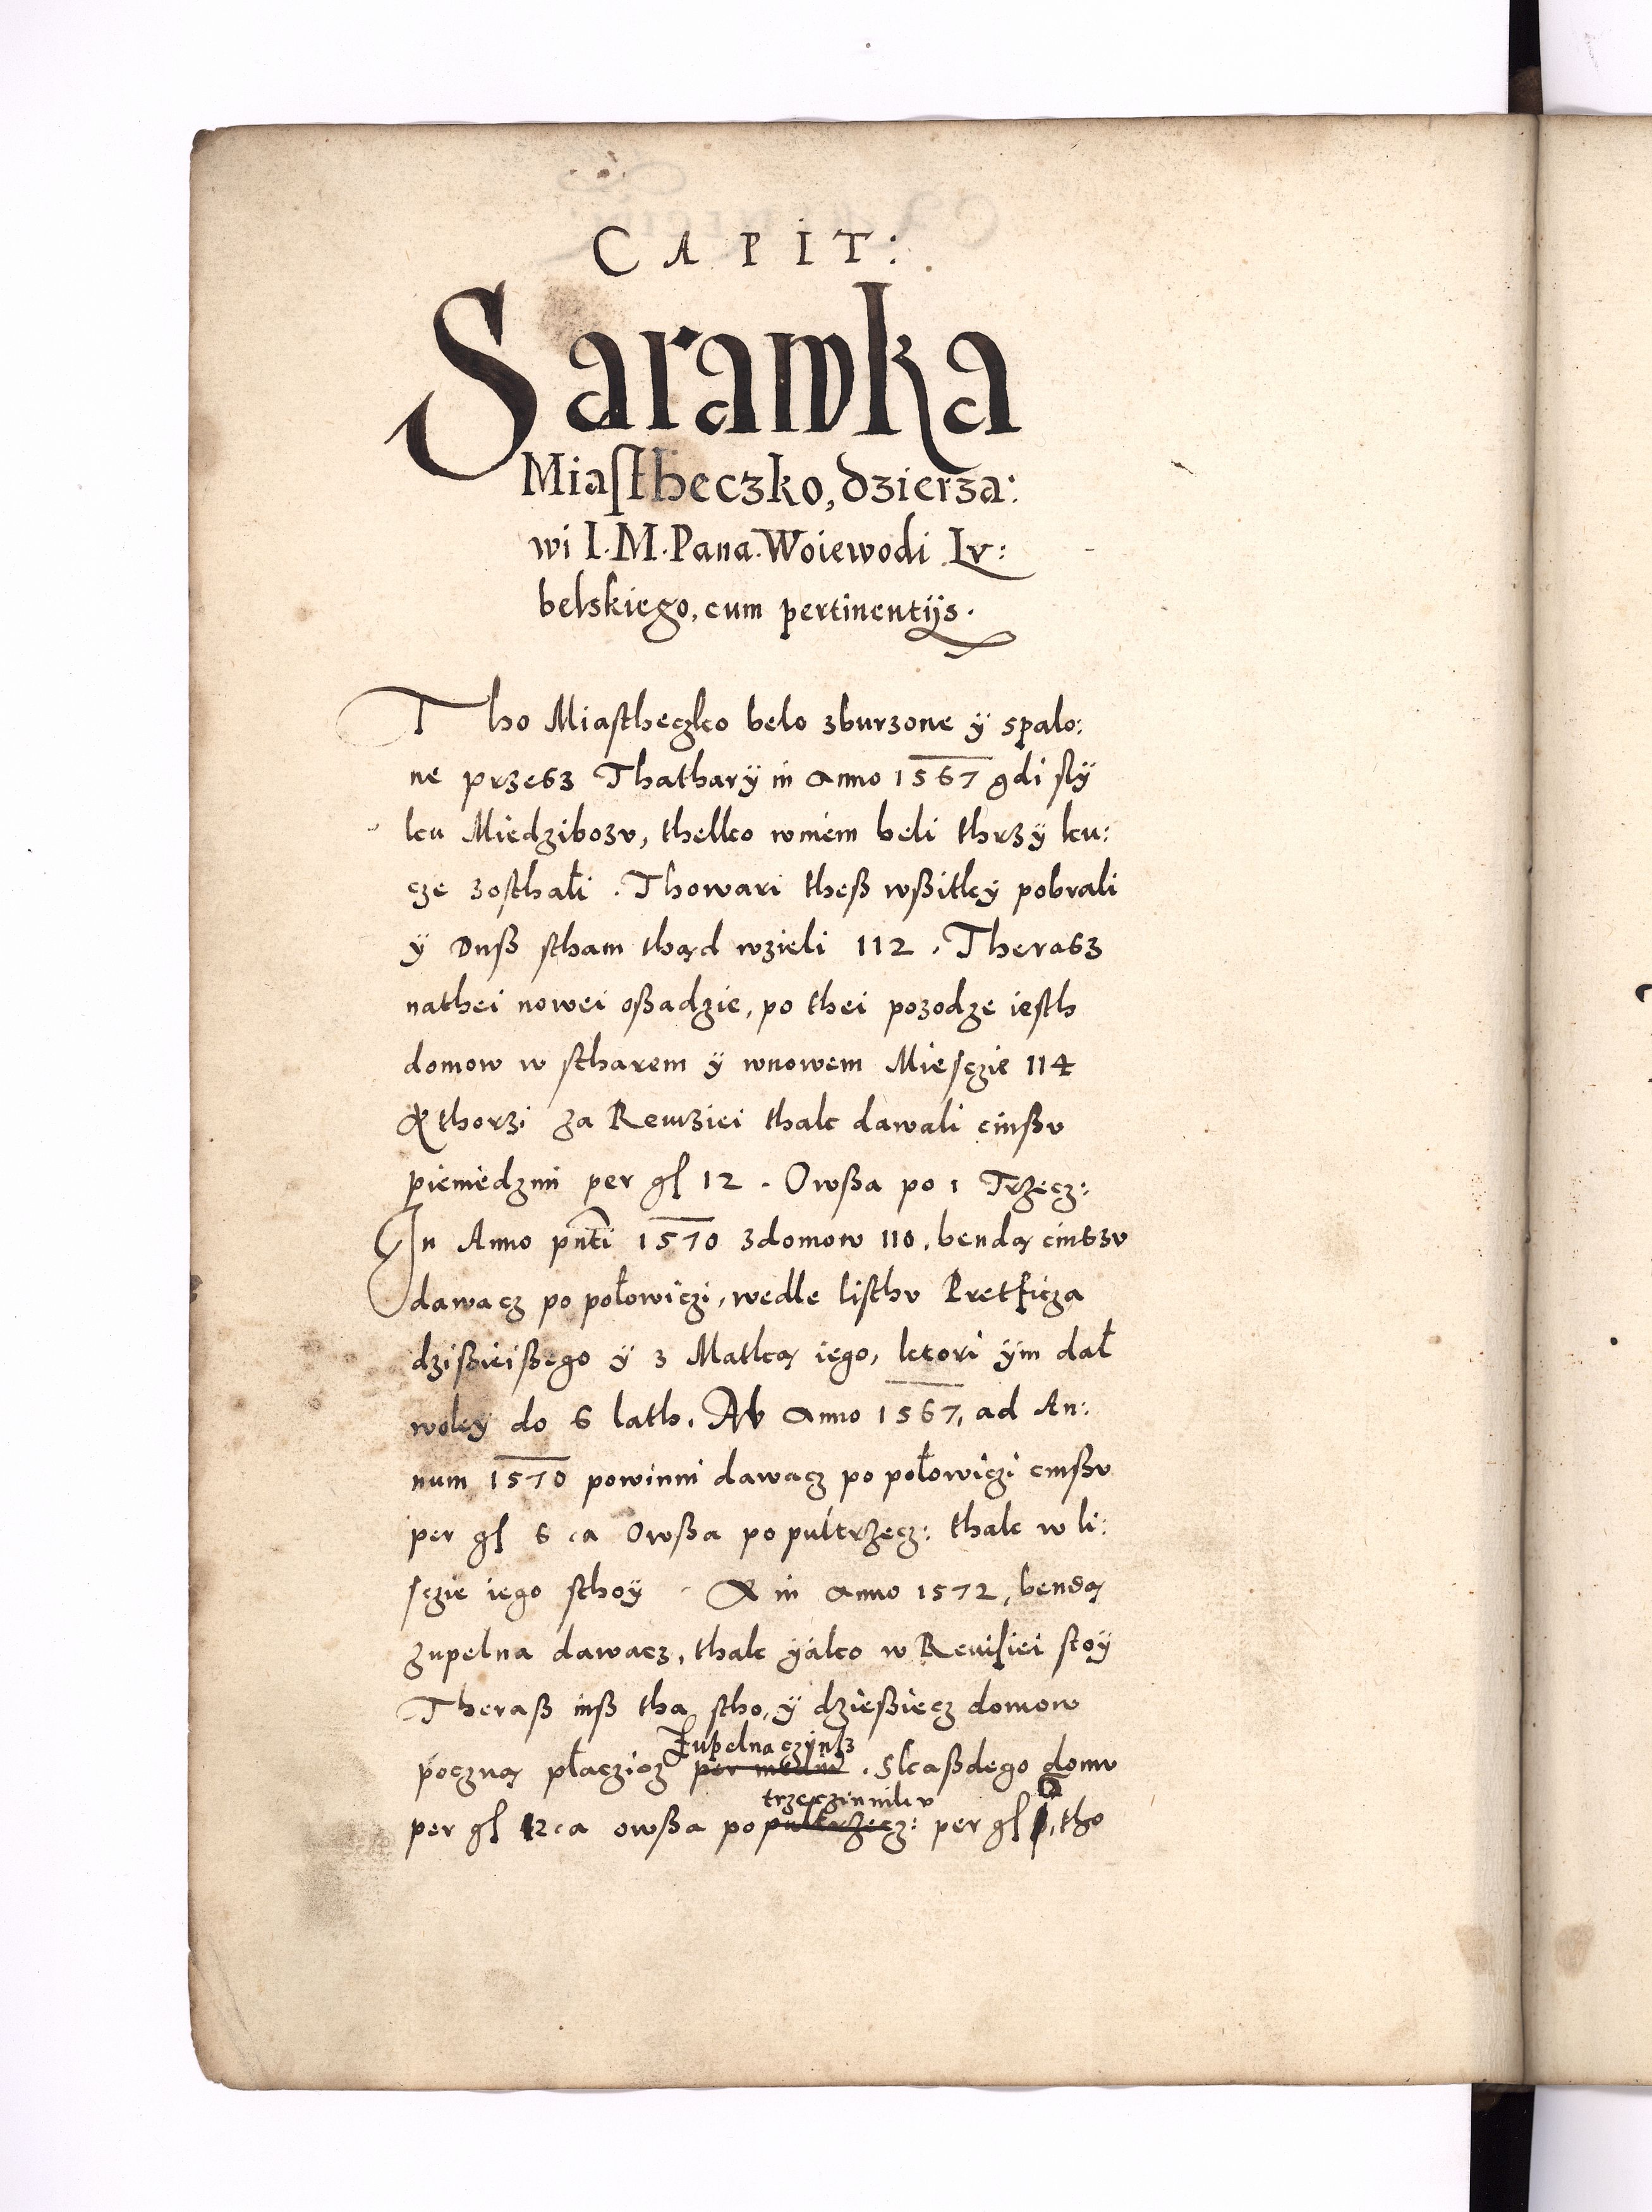 CAPIT:
Sarawka
Miastheczko, dzierza:
wi I. M. Pana. Woiewodi Lv:
belskiego, cum pertinentijs.
Tho Miastheczko belo zburzone ÿ spalo:
ne przesz Thatharÿ in Anno 1567 gdi slÿ
ku Miedzibozv, thelko wniem beli thrzÿ ku:
cze zosthałi. Thowari theß wßitkÿ pobrali
ÿ Duß stham thąd wzieli 112. Therasz
nathei nowei oßadzie, po thei pozodze iesth
domow w stharem ÿ wnowem Miesczie 114
Kthorzi za Rewziei thak dawali cinßv
pieniedzmi per gſ 12. Owßa po 1 Trzecz:
In Anno pñti 1570 zdomow 110, bendą cinszv
dawacz po połowiczi, wedle listhv Pretficza
dzißieißego ÿ z Matką iego, ktori ÿm dał
wolÿ do 6 lath. Ab Anno 1567, ad An:
num 1570 powinni dawacz po połowiczi cinßv
per gſ 6 ca Owßa po pultrzecz: thak w li:
sczie iego sthoÿ. A in Anno 1572, bendą
zupelna dawacz, thak ÿako w Reuisiei stoÿ
Theraß inß tha stho, ÿ dzießiecz domow
Zupelna czÿnsz
poczną płaczicz per mediu. Skaßdego domv
trzeczinnikv 6
per gſ 12 ca owßa po pultrzecz: per gſ, tho